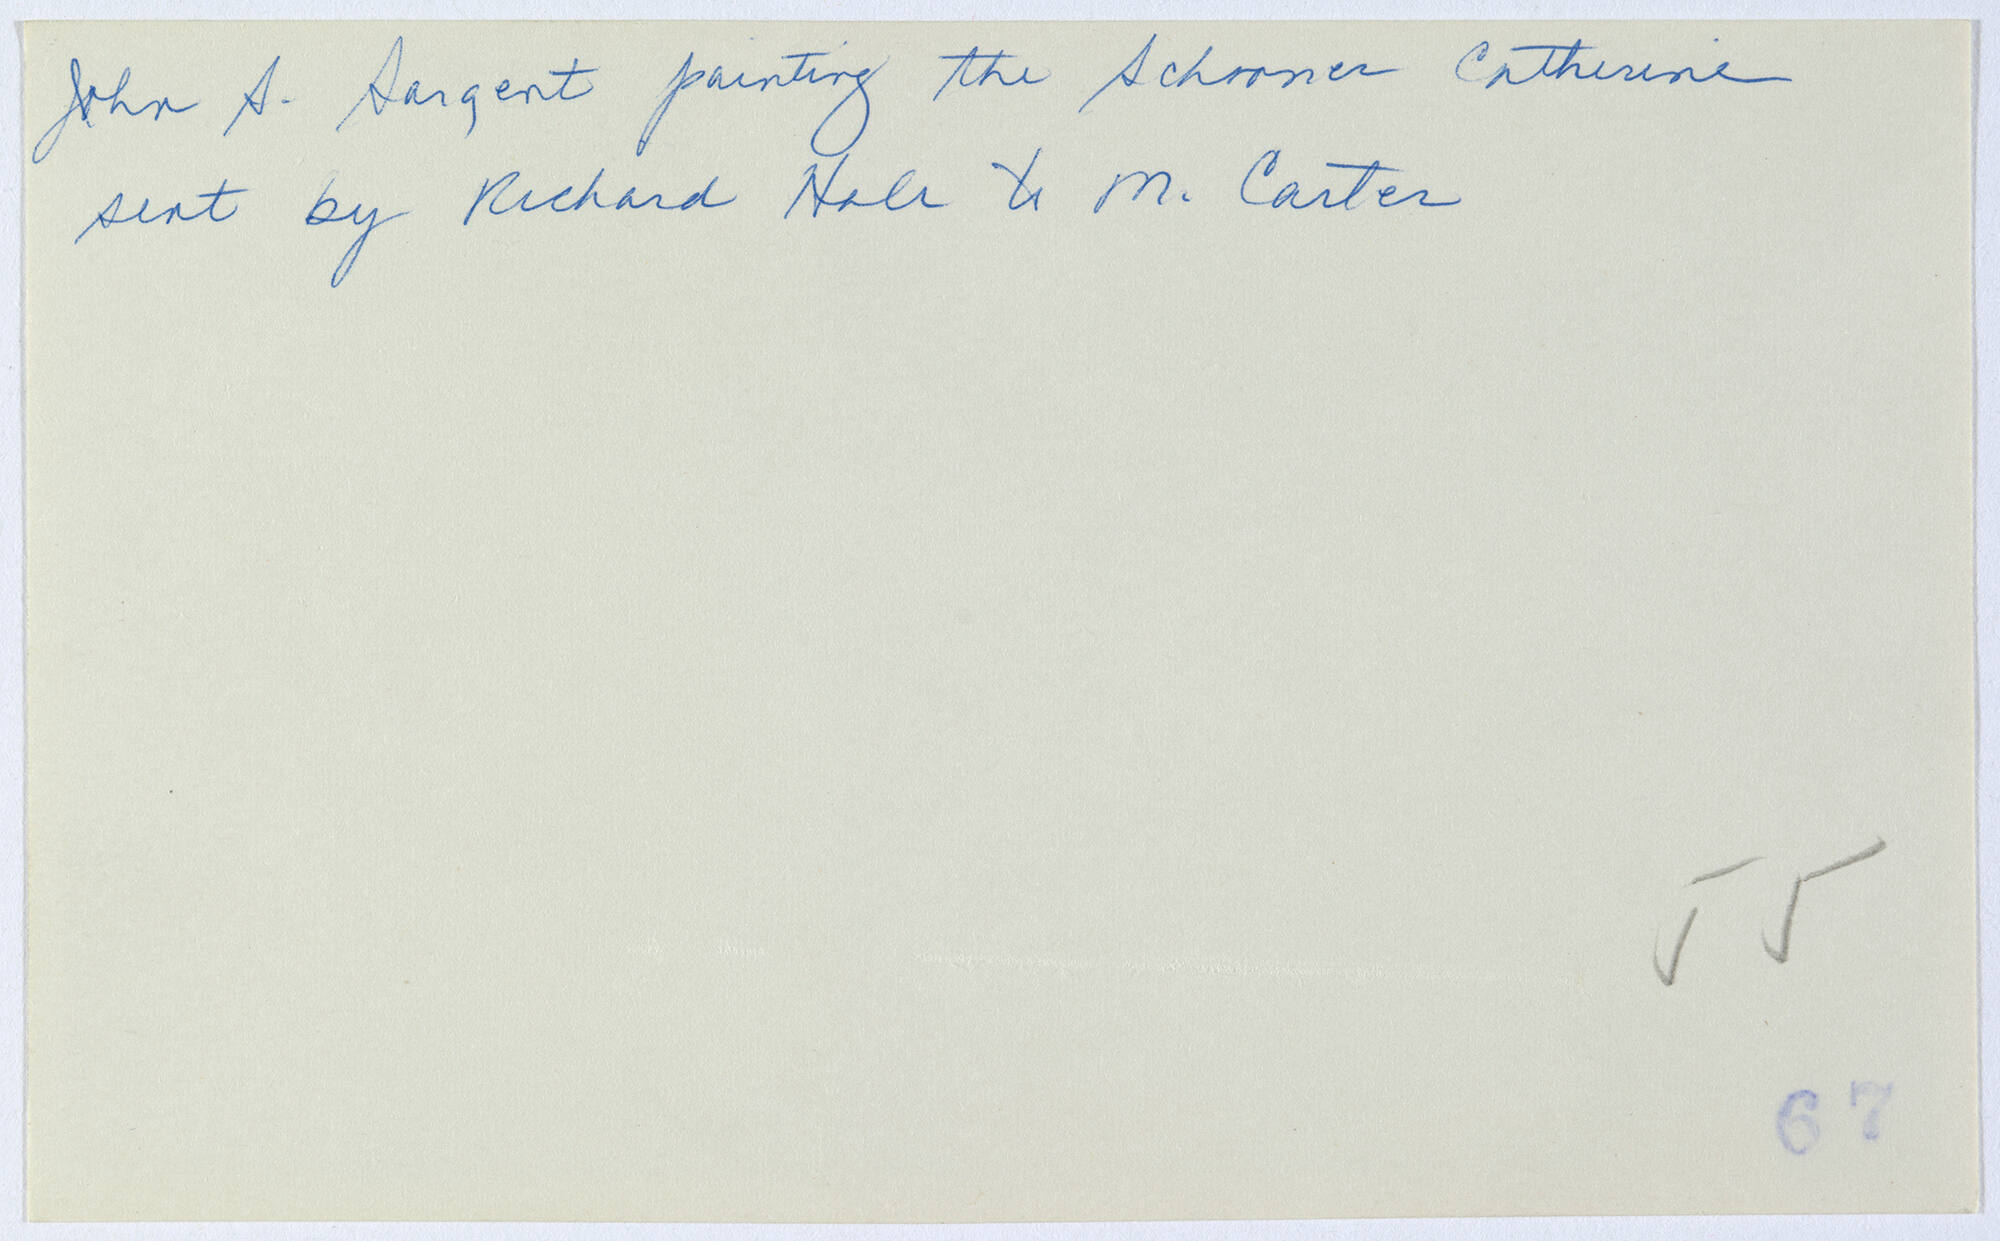 John S. Sargent painting the Schooner Catherine
sent by Richard Hale to M. Carter
55
67